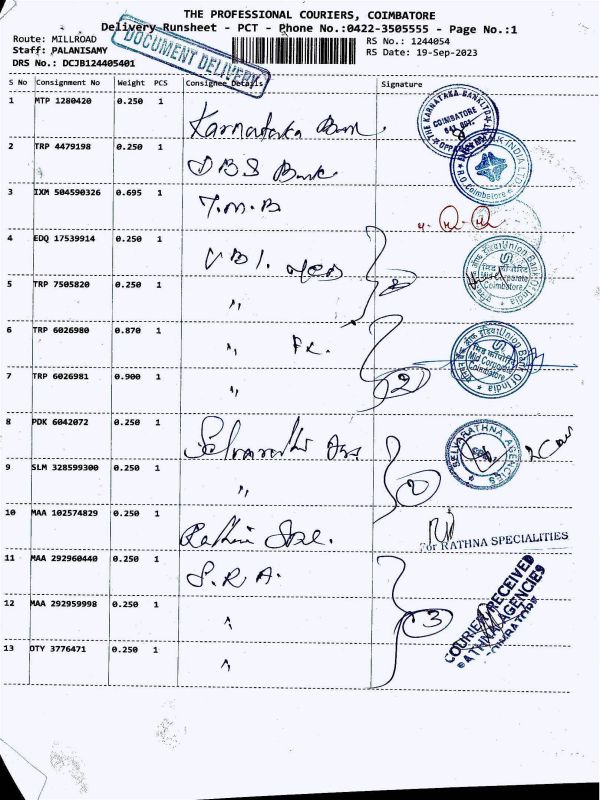 THE PROFESSIONAL COURIERS, COIMBATORE
Delivery Runsheet - PCT - Phone No.:0422-3505555 - Page No.:1
Route: MILLROAD
RS No.: 1244054
Staff: PALANISAMY
RS Date: 19-Sep-2023
DRS No.: DCJB124405401
DOCUMENT DELIVERY
S No Consignment No Weight PCS Consignee Details Signature
1 MTP 1280420 0.250 1 Karnataka Bank
THE KARNATAKA BANK LTD
COIMBATORE
2 TRP 4479198 0.250 1 DBS Bank
INDIA LTD
Coimbatore
3 IXM 504590326 0.695 1 T.M.B
4 EDQ 17539914 0.250 1 UBI.
Union Bank Of India
Mid Corporate
Coimbatore
5 TRP 7505820 0.250 1 "
2
6 TRP 6026980 0.870 1 "
Union Bank Of India
Mid Corporate
Coimbatore
7 TRP 6026981 0.900 1 "
2
8 PDK 6042072 0.250 1
SELVARATHNA AGENCIES
9 SLM 328599300 0.250 1 "
2
10 MAA 102574829 0.250 1
For RATHNA SPECIALITIES
11 MAA 292960440 0.250 1 S.R.A.
COURIER RECEIVED
RATHNA AGENCIES
COIMBATORE
12 MAA 292959998 0.250 1 "
3
13 OTY 3776471 0.250 1 "